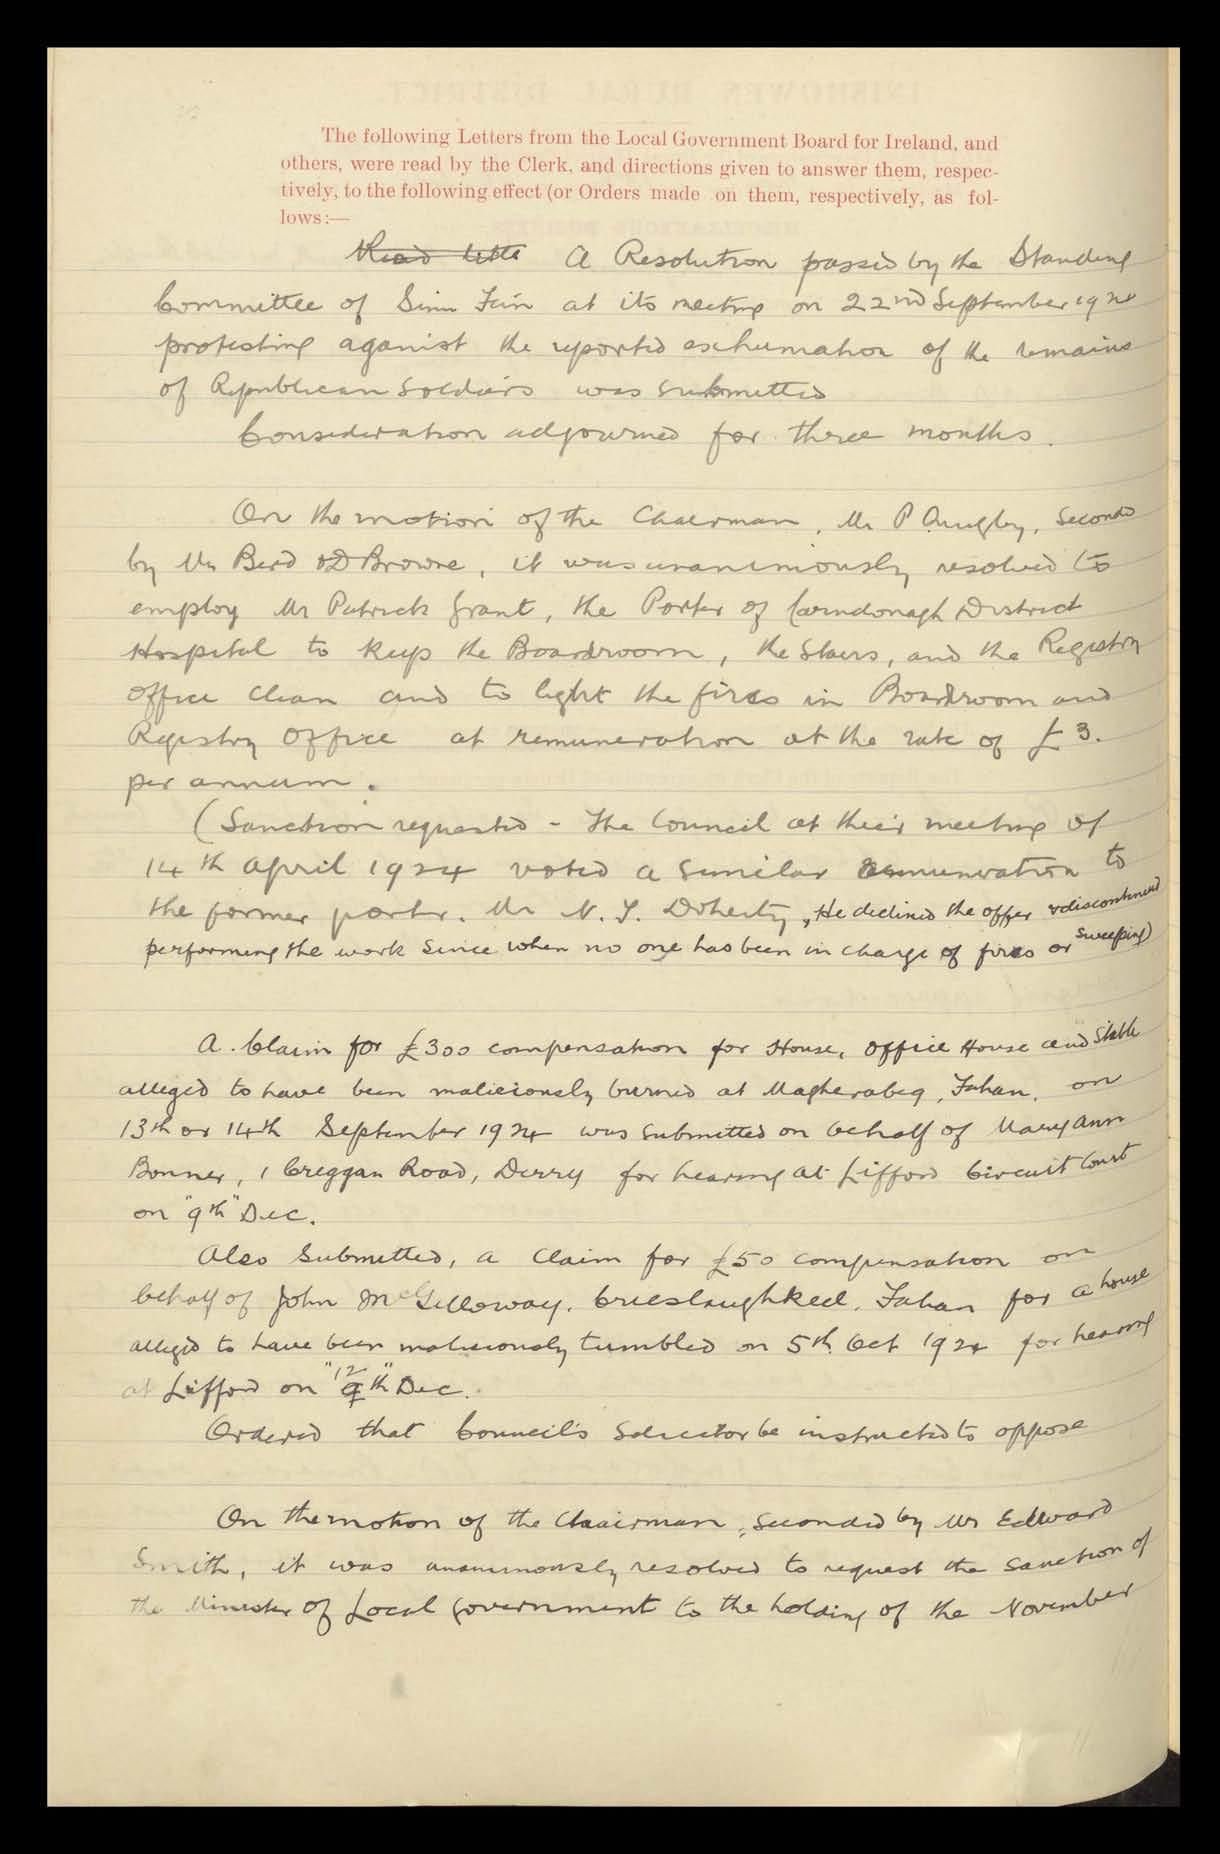 The following Letters from the Local Government Board for Ireland, and
others, were read by the Clerk, and directions given to answer them, respec-
tively, to the following effect (or Orders made on them, respectively, as fol-
lows:—
Read lette A Resolution passed by the Standing
Committee of Sinn Fein at its meeting on 22nd September 1924
protesting against the reported exhumation of the remains
of Republican Soldiers was submitted
Consideration adjourned for three months.
On the motion of the Chairman, Mr P Quigley, Seconded
by Mr Bernard O'D Browne, it was unanimously resolved to
employ Mr Patrick Grant, the Porter of Carndonagh District
Hospital to keep the Boardroom, the Stairs, and the Registry
Office clean and to light the fires in Boardroom and
Registry Office at remuneration at the rate of £3.
per annum.
(Sanction requested - The Council at their meeting of
14th April 1924 voted a similar remuneration to
the former porter. Mr N. J. Doherty, He declined the offer & discontinued
performing the work since when no one has been in charge of fires or sweeping)
A Claim for £300 compensation for House, Office House and Stable
alleged to have been maliciously burned at Magherabeg, Fahan, on
13th or 14th September 1924 was submitted on behalf of Mary Ann
Bonner, 1 Creggan Road, Derry for hearing at Lifford Circuit Court
on "9th" Dec.
Also Submitted, a Claim for £50 compensation on
behalf of John McGilloway, Crieslaughkeel, Fahan for a house
alleged to have been maliciously tumbled on 5th Oct 1924 for hearing
at Lifford on "12 9th" Dec.
Ordered that Council's Solicitor be instructed to oppose
On the motion of the Chairman, seconded by Mr Edward
Smith, it was unanimously resolved to request the sanction of
the Minister of Local Government to the holding of the November